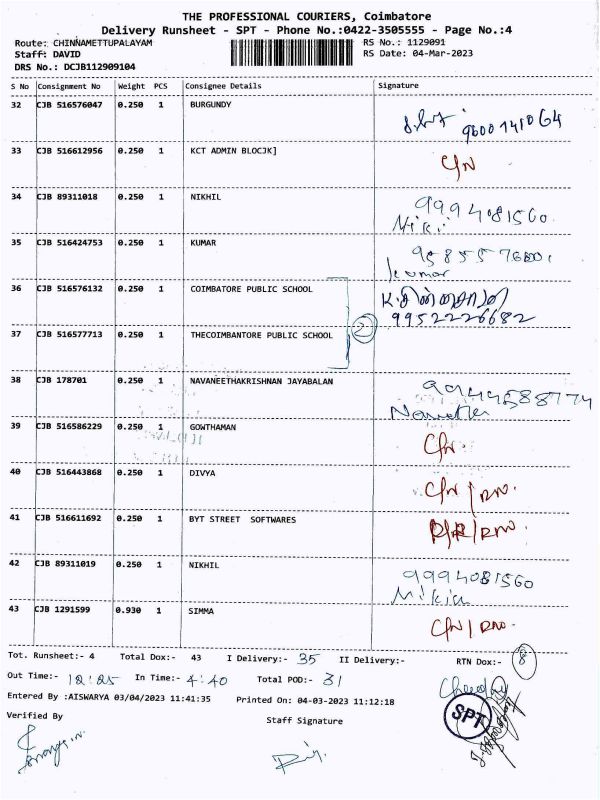 THE PROFESSIONAL COURIERS, Coimbatore
Delivery Runsheet - SPT - Phone No.:0422-3505555 - Page No.:4
Route: CHINNAMETTUPALAYAM RS No.: 1129091
Staff: DAVID RS Date: 04-Mar-2023
DRS No.: DCJB112909104
S No Consignment No Weight PCS Consignee Details Signature
32 CJB 516576047 0.250 1 BURGUNDY
33 CJB 516612956 0.250 1 KCT ADMIN BLOCJK] C/N
34 CJB 89311018 0.250 1 NIKHIL 9994081560
35 CJB 516424753 0.250 1 KUMAR
kumar
36 CJB 516576132 0.250 1 COIMBATORE PUBLIC SCHOOL
9952226682
37 CJB 516577713 0.250 1 THECOIMBANTORE PUBLIC SCHOOL 2
38 CJB 178701 0.250 1 NAVANEETHAKRISHNAN JAYABALAN
39 CJB 516586229 0.250 1 GOWTHAMAN C/N.
40 CJB 516443868 0.250 1 DIVYA C/N
41 CJB 516611692 0.250 1 BYT STREET SOFTWARES
42 CJB 89311019 0.250 1 NIKHIL 9994081560
43 CJB 1291599 0.930 1 SIMMA C/N
Tot. Runsheet:- 4 Total Dox:- 43 I Delivery:- 35 II Delivery:- RTN Dox:- 8
Out Time:- 12:25 In Time:- 4:40 Total POD:- 31
Entered By :AISWARYA 03/04/2023 11:41:35 Printed On: 04-03-2023 11:12:18
SPT
Verified By Staff Signature